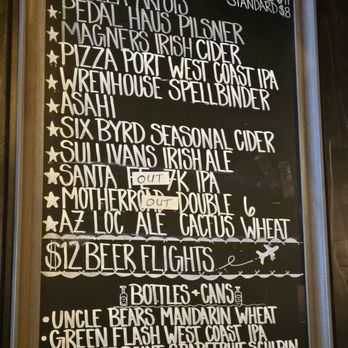 STANDARD $8
PEDAL HAUS PILSNER
★ MAGNERS IRISH CIDER
★ PIZZA PORT WEST COAST IPA
★ WRENHOUSE SPELLBINDER
★ ASAHI
★ SIX BYRD SEASONAL CIDER
★ SULLIVANS IRISH ALE
★ SANTA OUT K IPA
★ MOTHERROAD OUT DOUBLE 6
★ AZ LOC ALE CACTUS WHEAT
$12 BEER FLIGHTS
BOTTLES + CANS
• UNCLE BEARS MANDARIN WHEAT
• GREEN FLASH WEST COAST IPA
GRAPEFRUIT SCULPIN